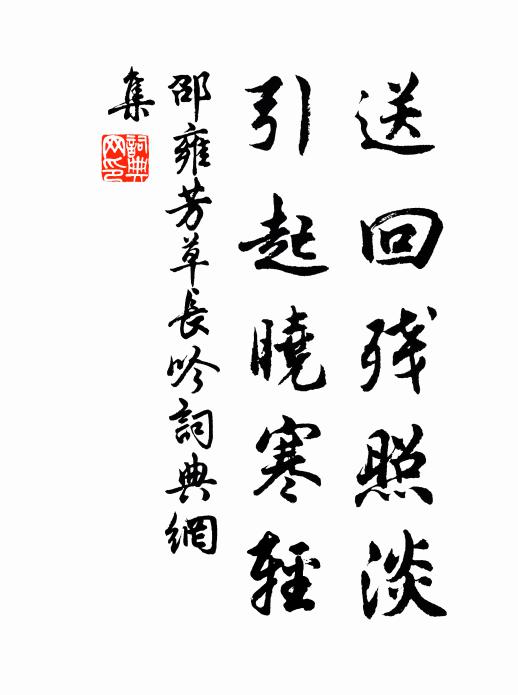 送回残照淡
引起曉寒輕
邵雍芳草長吟詞典網
集
詞典
网印